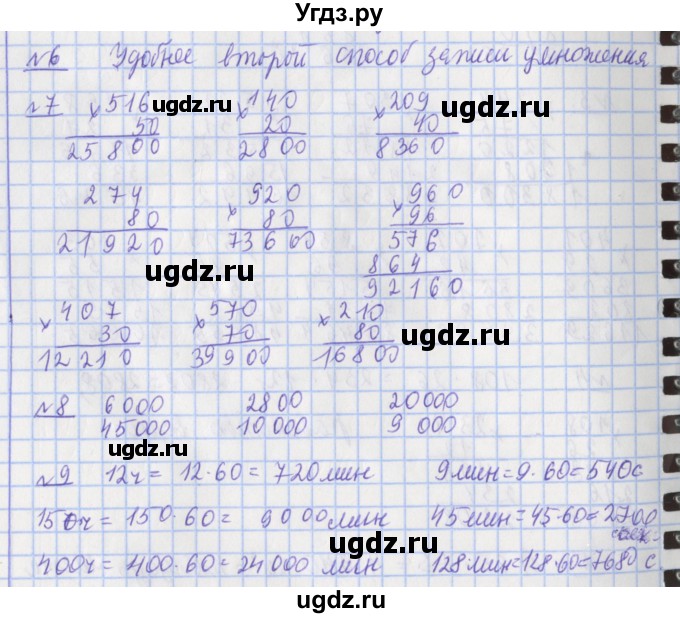 Угдз.ру
№6 Удобнее второй способ записи умножения
№7 ×516 ugdz.ru ×140 ×209
50 20 ugdz.ru 40
25800 2800 8360
274 920 960
80 × 80 × 96
21920 73600 576
ugdz.ru 864
92160
×407 ×570 ×210 ugdz.ru
30 70 80
12210 ugdz.ru 39900 16800 ugdz.ru
№8 6000 2800 20000
45000 10000 9 000
ugdz.ru
№9 12ч = 12·60 = 720 мин 9 мин = 9·60 = 540 с
ugdz.ru
150ч = 150·60 = 9000 мин 45 мин = 45·60 = 2700
сек.
400ч = 400·60 = 24000 мин 128 мин = 128·60 = 7680 с
ugdz.ru ugdz.ru
ugdz.ru